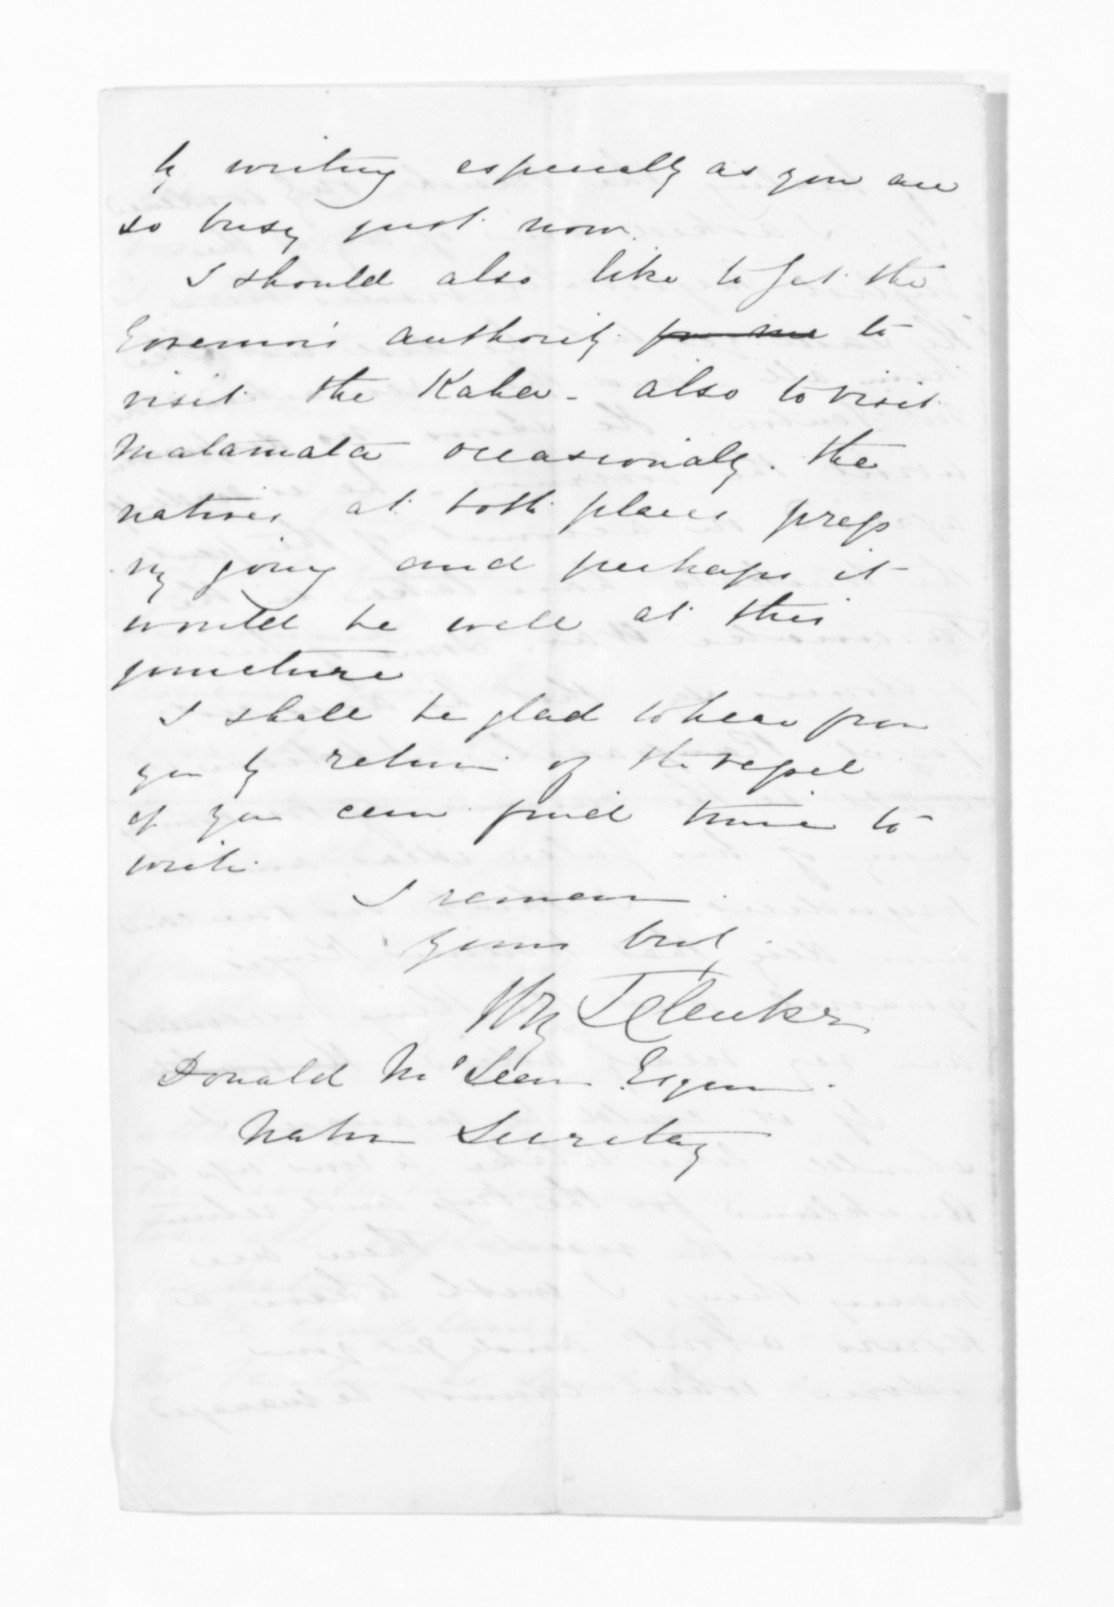 by writing especially as you are
so busy just now.
I should also like to get the
Governor's authority for me to
visit the Kaha - also to visit
Matamata occasionally. The
natives at both places press
my going and perhaps it
would be well at this
juncture
I shall be glad to hear from
you by return of the vessel
if you can find time to
write.
I remain
Yours
Donald McLean Esqre.
Native Secretary